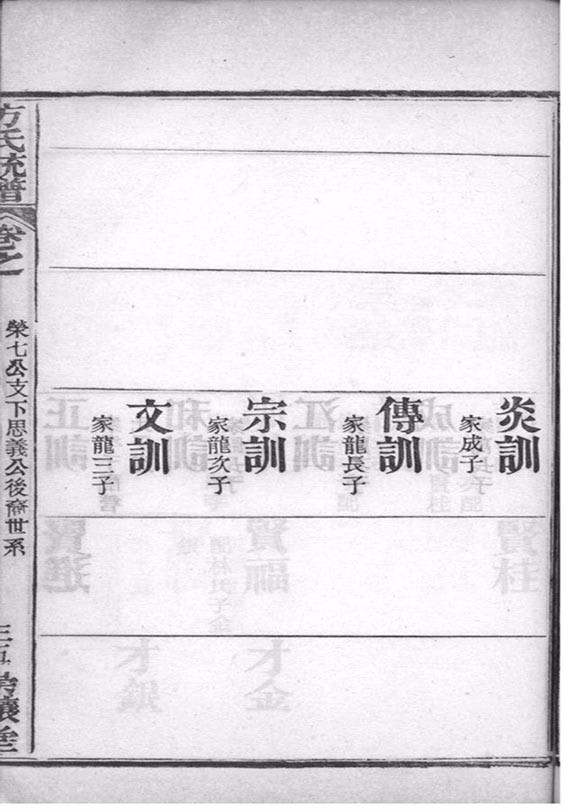 炎訓
家成子
傳訓
家龍長子
宗訓
家龍次子
文訓
家龍三子
方氏統譜
卷之
榮七公支下思義公後裔世系